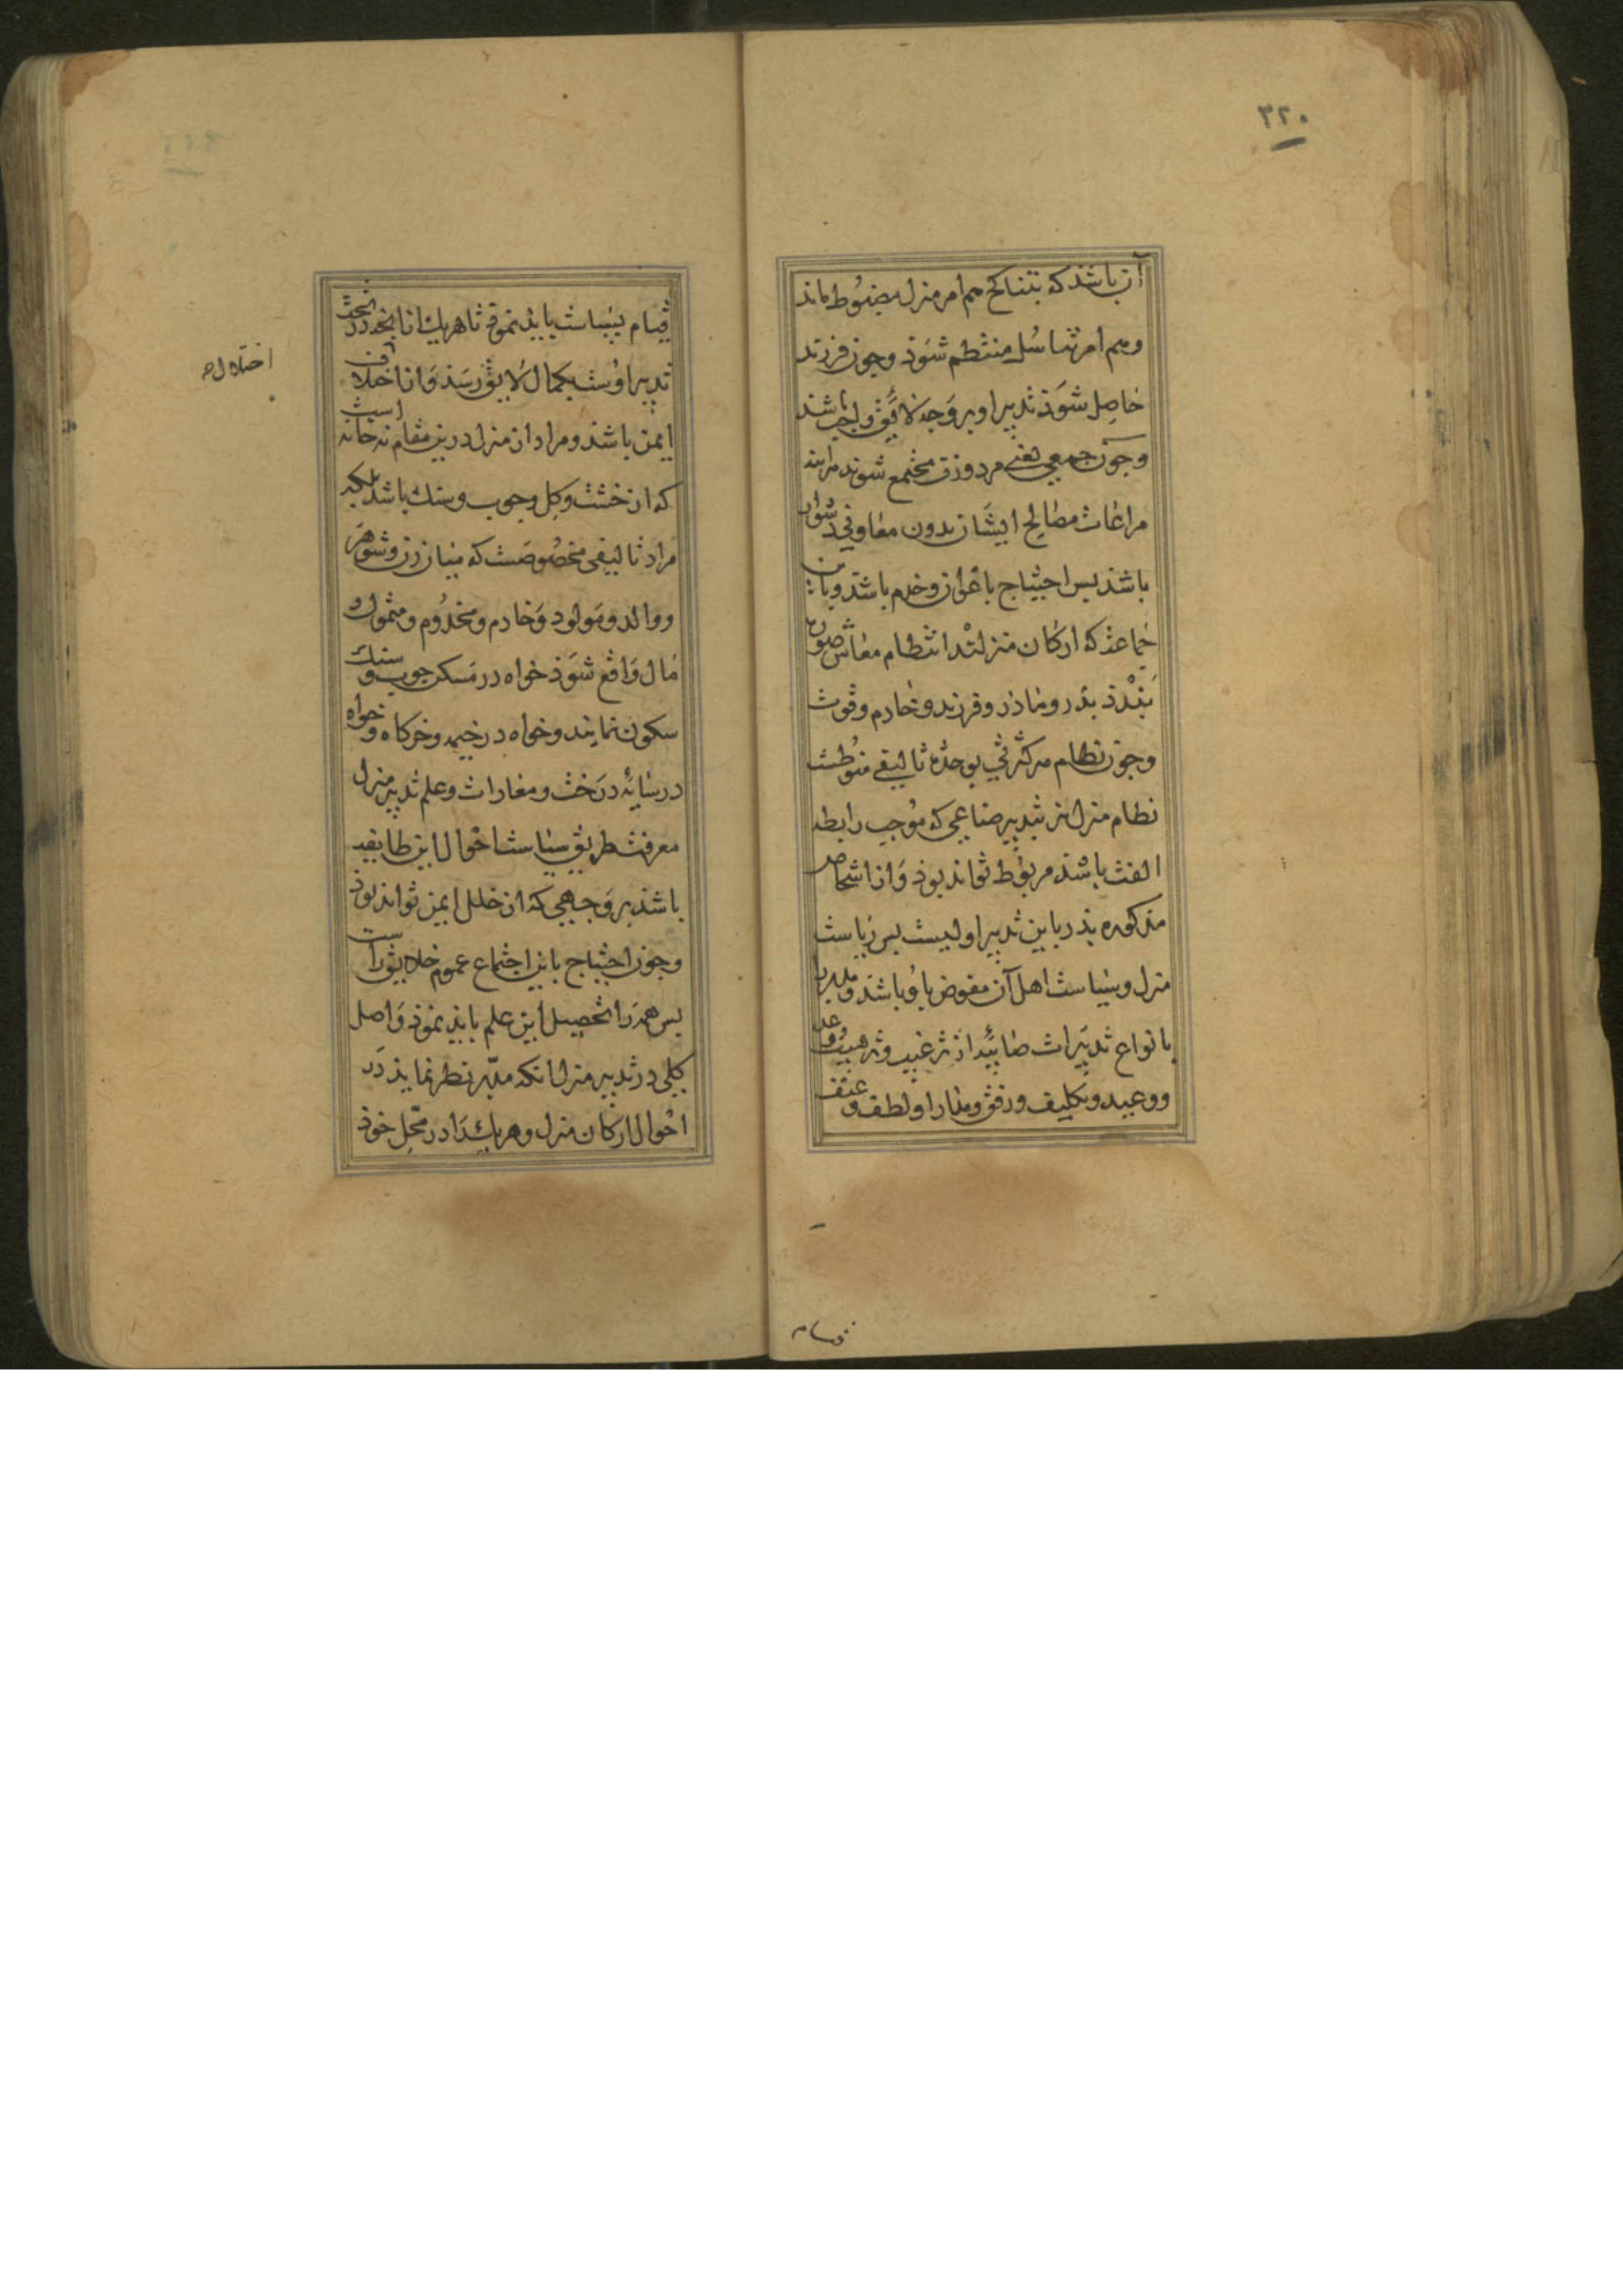 ۳۲۰
آن باشد که بتناکح هم امر منزل مضبوط ماند
وهم امر تناسل منتظم شوذ وجون فرزند
حاصل شوذ تدبیر او بر وجه لایق واجب باشد
وجون جمعی یعنی مرد وزن مجتمع شوند هراینه
مراعات مصالح ایشان بدون معاونی دشوار
باشد بس احتیاج باعوان وخدم باشد وباین
جماعة که ارکان منزلند انتظام معاش صورت
بندد بدر وماذر وفرزند وخادم وقوت
وجون نظام هر کثرتی بوحدة تالیفی منوطست
نظام منزل نیز بتدبیر صناعی که موجب رابطه
الفت باشد مربوط تواند بوذ واز اشخاص
مذکوره بذر باین تدبیر اولیست بس ریاست
منزل وسیاست اهل آن مفوض باو باشد
بانواع تدبیرات صائبه از ترغیب وترهیب ووعد
ووعید وتکلیف ورفق ومدارا ولطف وعنف
قیام بسیاست بایذ نموذ تا هریك از انچه در تحت
تدبیر اوست بکمال لایق رسذ واز اختلاف
ایمن باشد ومراد از منزل درین مقام نه خانه است
که از خشت وکل وجوب وسنك باشد بلکه
مراد تالیفی مخصوصست که میان زن وشوهر
ووالد ومولود وخادم ومخدوم ومتمول و
مال واقع شوذ خواه در مسکن جوب وسنك
سکون نمایند وخواه در خیمه وخرکاه وخواه
در سایه درخت ومغارات وعلم تدبیر منزل
معرفت طریق سیاست احوال این طایفه
باشذ بر وجهی که از خلل ایمن تواند بوذ
وجون احتیاج باین اجتماع عموم خلایق راست
بس همه را تحصیل این علم بایذ نموذ واصل
کلی در تدبیر منزل انکه مدبر نظر نمایذ در
احوال ارکان منزل وهریك را در محل خوذ
اختلال صح
قیام